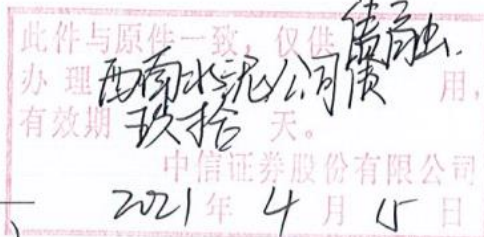 此件与原件一致,仅供债融
办理西南水泥公司债用,
有效期玖拾天。
中信证券股份有限公司
2021年4月15日